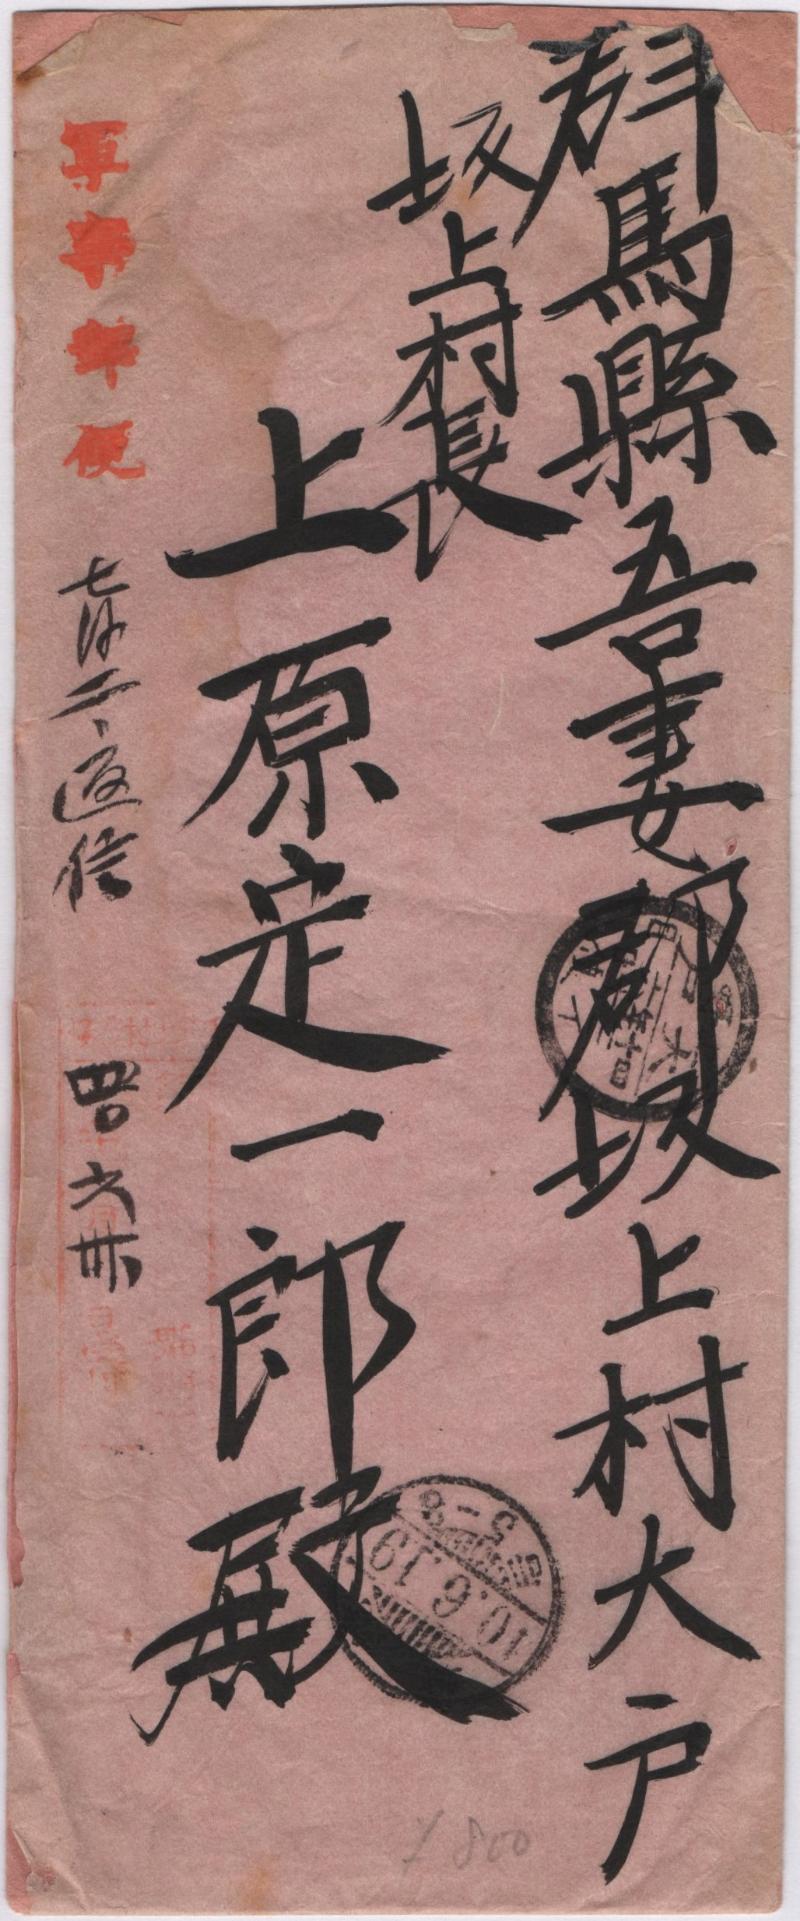 群馬縣吾妻郡坂上村大戸
坂上村長
上原定一郎殿
軍事郵便
返信
10.6.19
后5-8
¥800